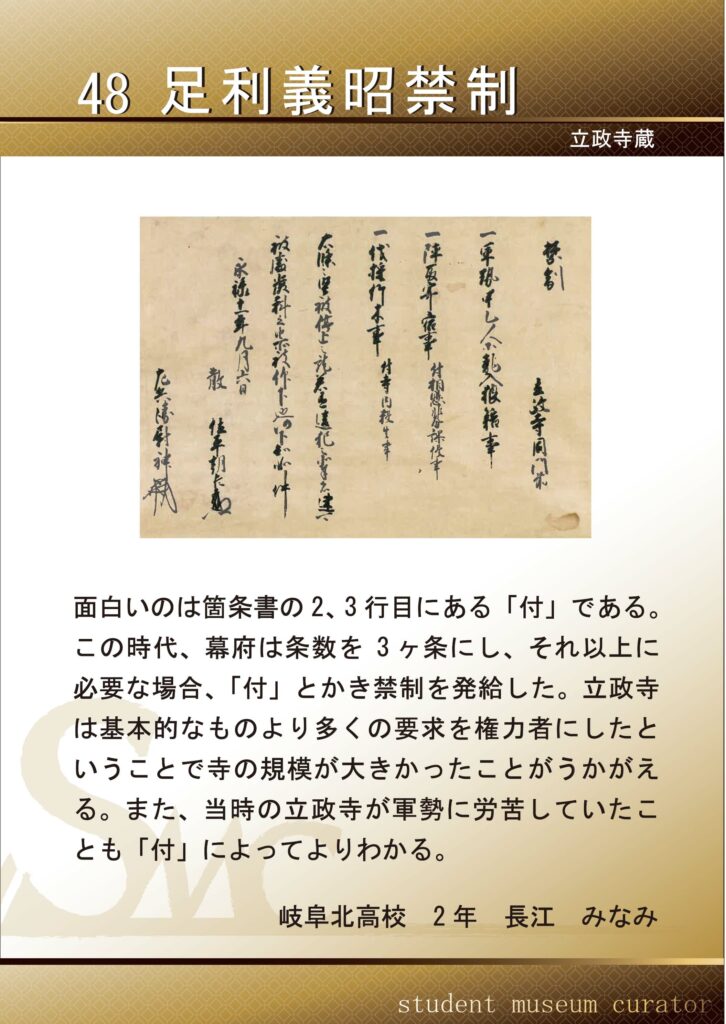 48 足利義昭禁制
立政寺蔵
禁制
立政寺同門前
一軍勢甲乙人等乱入狼藉事
一陣取并寄宿事 付相懸非分課役事
一伐採竹木事 付寺内殺生事
右条々堅被停止之訖若有違犯之輩者速可
被処厳科之由所被仰下也仍下知如件
永禄十一年九月六日
散位平朝臣
左兵衛尉神
面白いのは箇条書の2、3行目にある「付」である。
この時代、幕府は条数を 3ヶ条にし、それ以上に
必要な場合、「付」とかき禁制を発給した。立政寺
は基本的なものより多くの要求を権力者にしたと
いうことで寺の規模が大きかったことがうかがえ
る。また、当時の立政寺が軍勢に労苦していたこ
とも「付」によってよりわかる。
岐阜北高校 2年 長江 みなみ
SMC
student museum curator